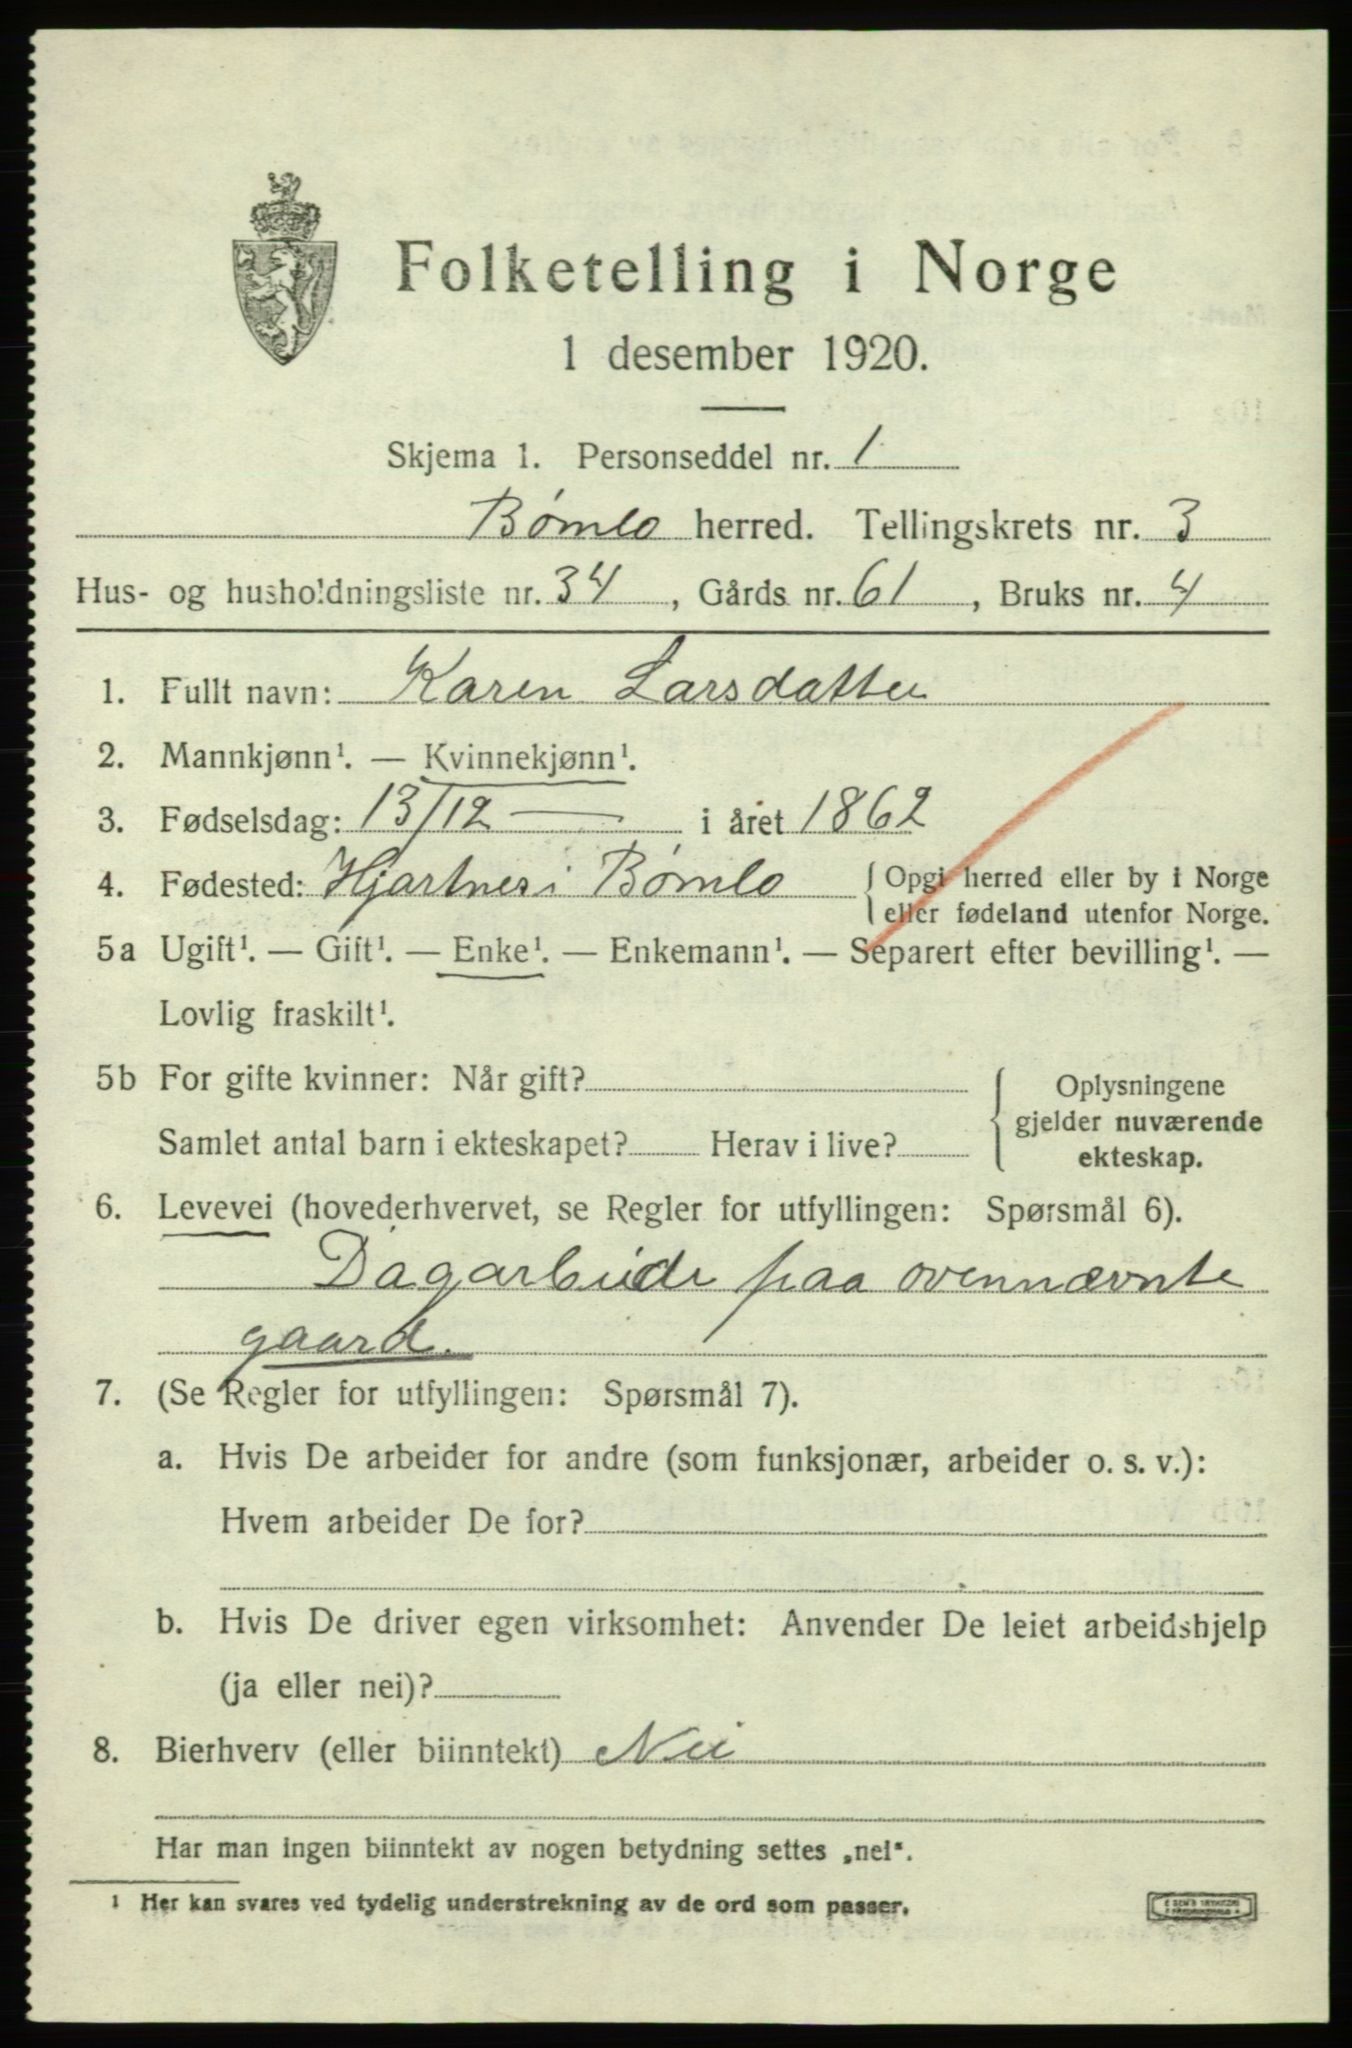 Folketelling i Norge
1 desember 1920.
Skjema 1. Personseddel nr. 1
Bømlo herred. Tellingskrets nr. 3
Hus- og husholdningsliste nr. 34, Gårds nr. 61, Bruks nr. 4
1. Fullt navn: Karen Larsdatter
2. Mannkjønn¹. — Kvinnekjønn¹.
3. Fødselsdag: 13/12 — i året 1862
4. Fødested: Hjartnes i Bømlo { Opgi herred eller by i Norge
eller fødeland utenfor Norge.
5a Ugift¹. — Gift¹. — Enke¹. — Enkemann¹. — Separert efter bevilling¹. —
Lovlig fraskilt¹.
5b For gifte kvinner: Når gift?
Samlet antal barn i ekteskapet? Herav i live?
{ Oplysningene
gjelder nuværende
ekteskap.
6. Levevei (hovederhvervet, se Regler for utfyllingen: Spørsmål 6).
Dagarbeide paa ovennævnte
gaard.
7. (Se Regler for utfyllingen: Spørsmål 7).
a. Hvis De arbeider for andre (som funksjonær, arbeider o. s. v.):
Hvem arbeider De for?
b. Hvis De driver egen virksomhet: Anvender De leiet arbeidshjelp
(ja eller nei)?
8. Bierhverv (eller biinntekt) Nei
Har man ingen biinntekt av nogen betydning settes „nei“.
¹ Her kan svares ved tydelig understrekning av de ord som passer.